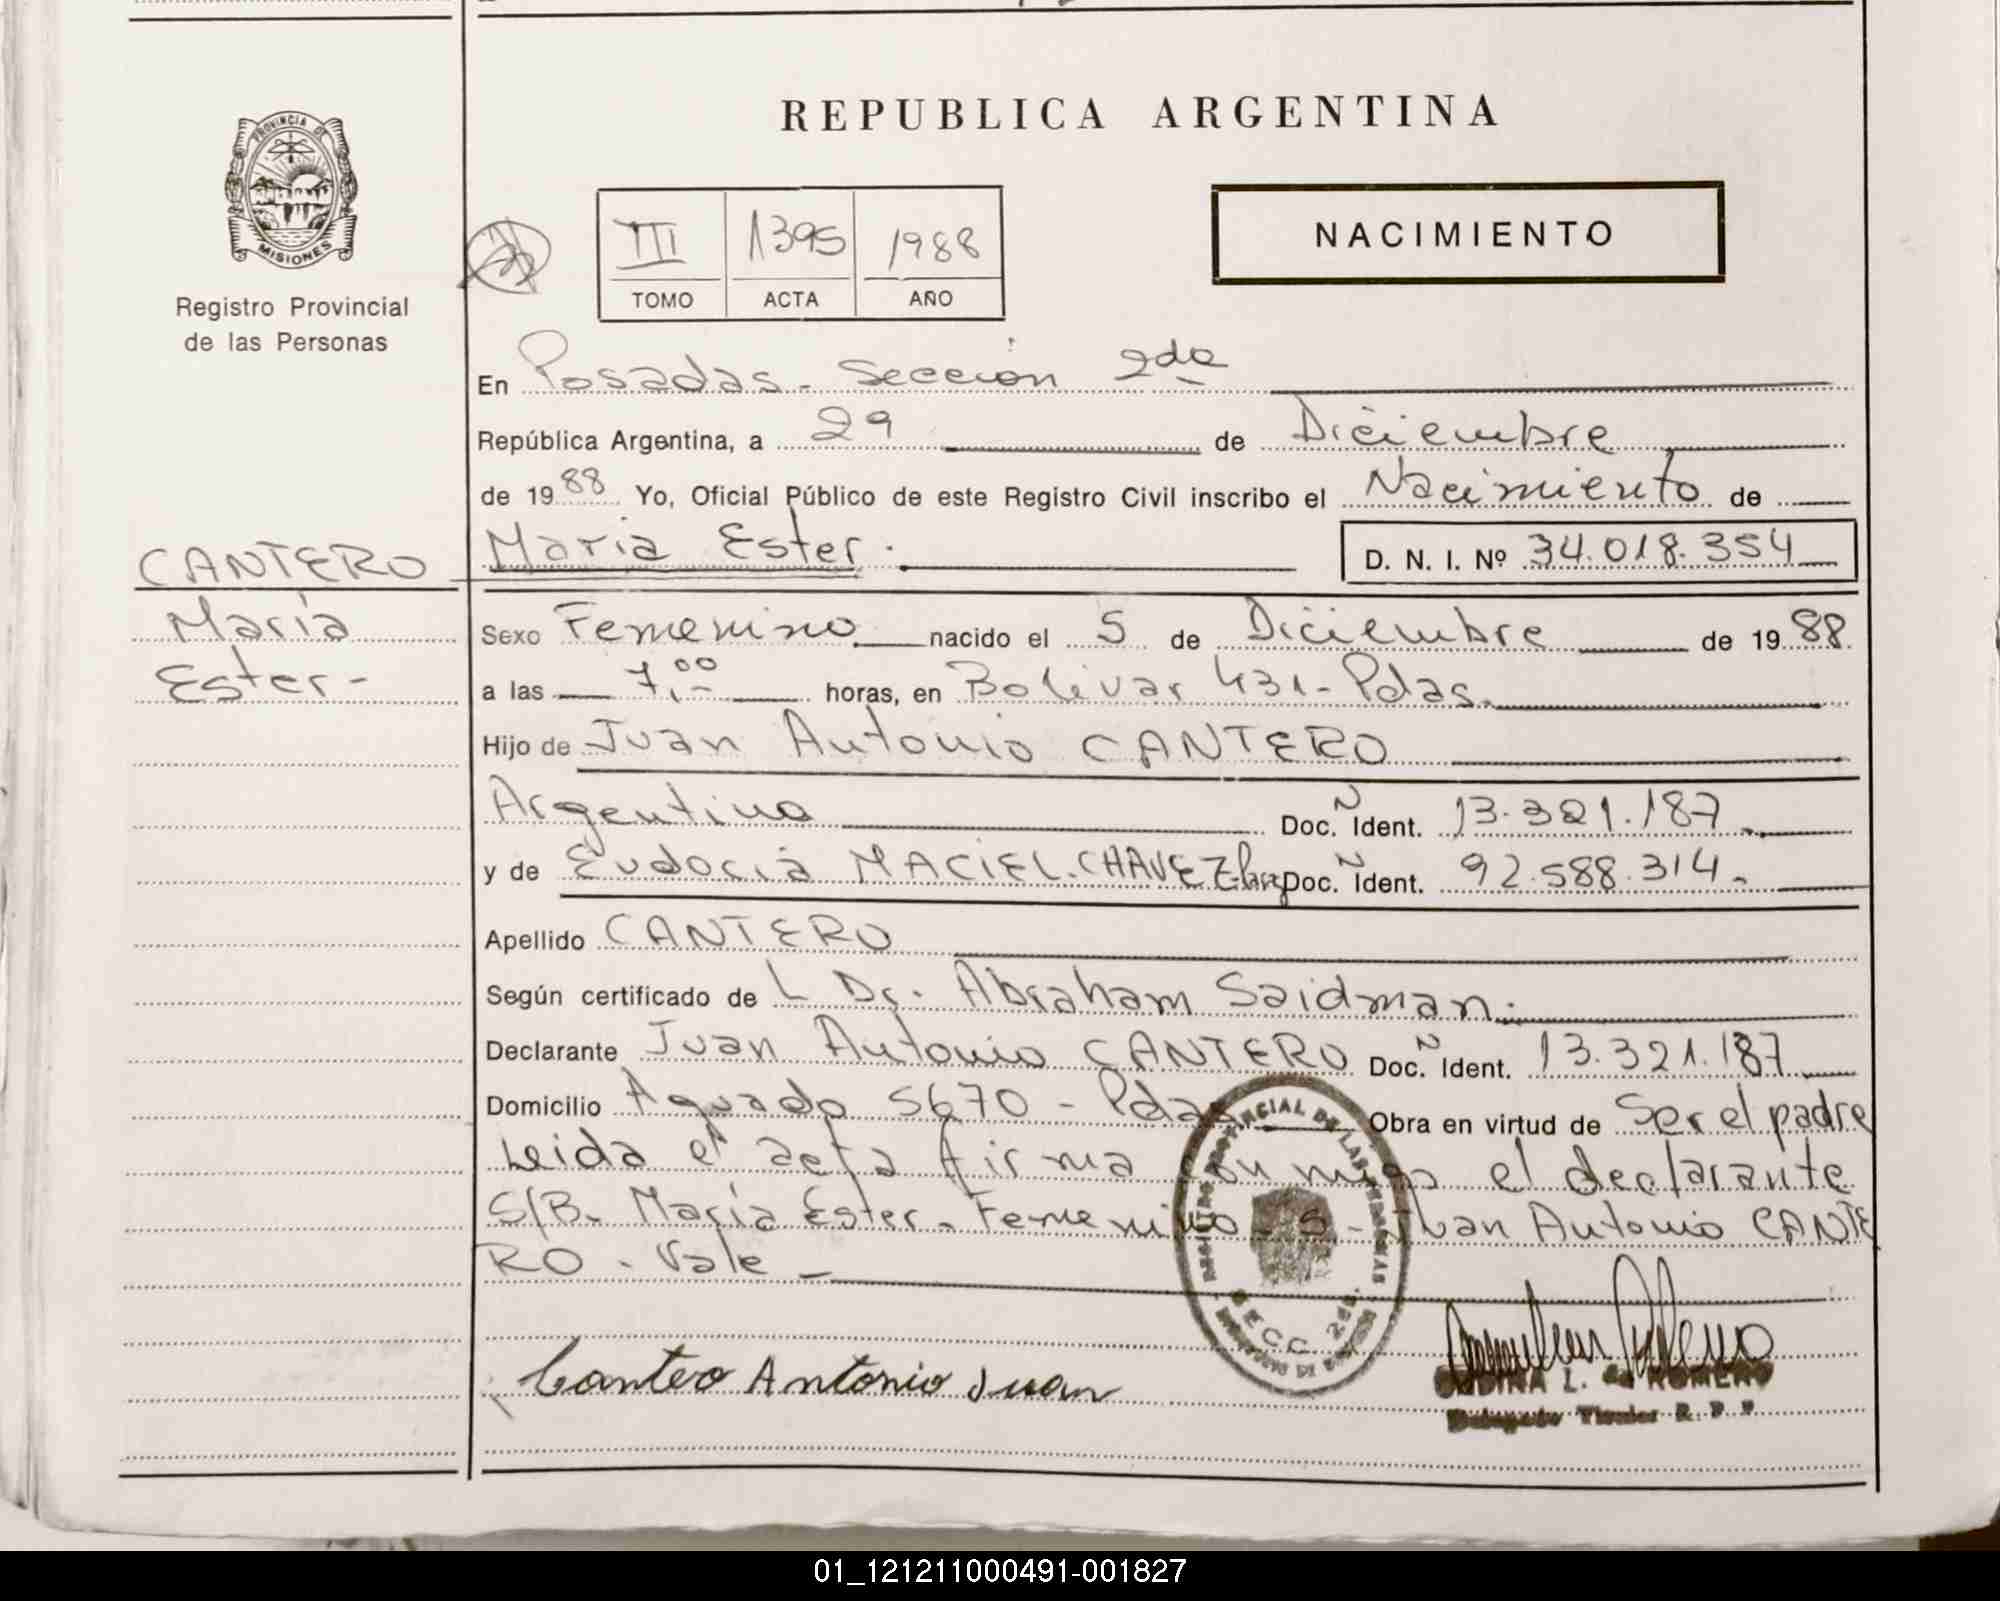 REPUBLICA ARGENTINA
PROVINCIA DE
MISIONES
Registro Provincial
de las Personas
III 1395 1988
TOMO ACTA AÑO
NACIMIENTO
En Posadas - Sección 2da
República Argentina, a 29 de Diciembre
de 1988 Yo, Oficial Público de este Registro Civil inscribo el Nacimiento de
Maria Ester. D. N. I. Nº 34.018.354
CANTERO
María
Ester-
Sexo Femenino nacido el 5 de Diciembre de 1988.
a las 7,00 horas, en Bolivar 431 - Pdas.
Hijo de Juan Antonio CANTERO
Argentino Doc. N Ident. 13.321.187
y de Eudocia MACIEL.CHAVEZ Doc. N Ident. 92.588.314.
Apellido CANTERO
Según certificado de L Dr. Abraham Saidman.
Declarante Juan Antonio CANTERO Doc. N Ident. 13.321.187
Domicilio Aguado 5670 - Pdas Obra en virtud de Ser el padre
Leida el acta firma con migo el declarante
S/B. María Ester. Femenino - 5 - Juan Antonio CANTE
RO. Vale -
REGISTRO PROVINCIAL DE LAS PERSONAS
SECC. 2da.
Cantero Antonio Juan
L. de ROMERO
Delegado Titular R. P. P.
01_121211000491-001827